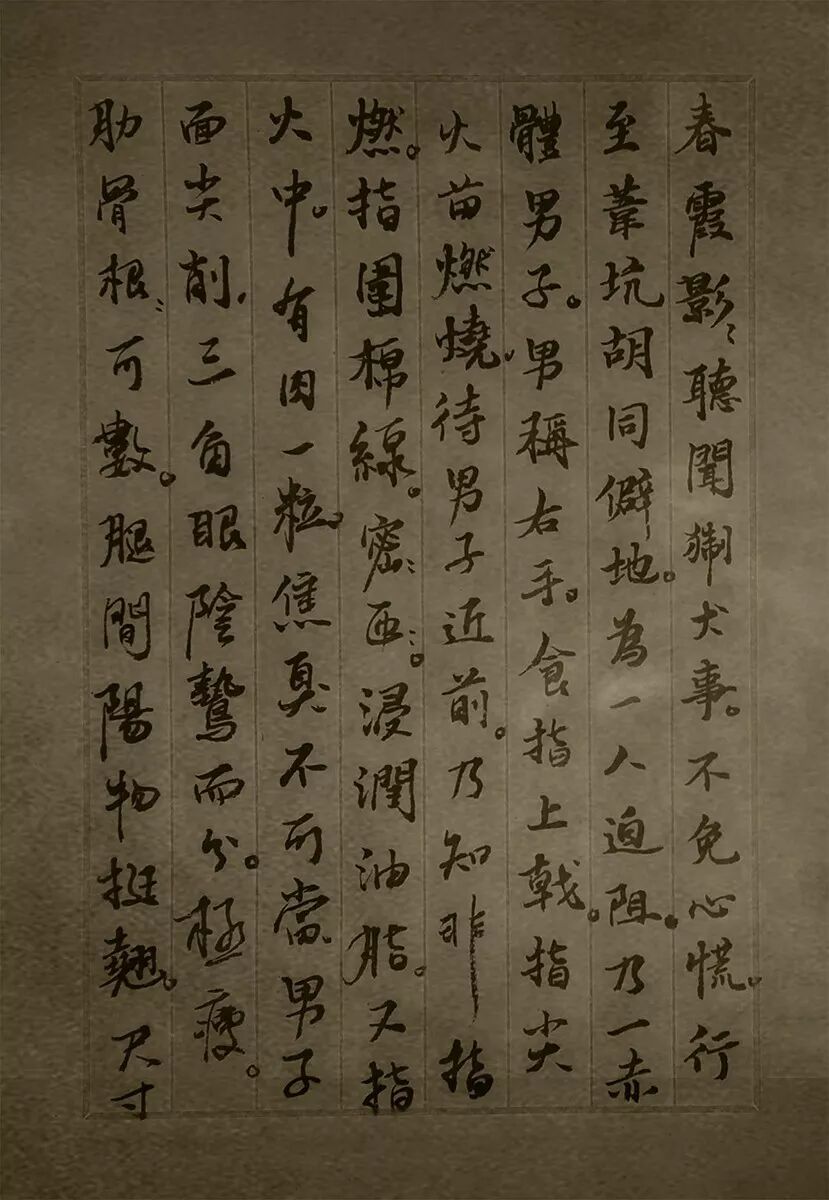 春霞影〻聽聞猘犬事。不免心慌。行
至葦坑胡同僻地。為一人迫阻。乃一赤
體男子。男稱右手。食指上戟。指尖
火苗燃燒，待男子近前。乃知非指
燃。指圍棉線。密〻匝〻。浸潤油脂。又指
火中。有肉一粒。焦臭不可當。男子
面尖削，三角眼陰鷙而分。極瘦。
肋骨根〻可數。腿間陽物挺翹。尺寸